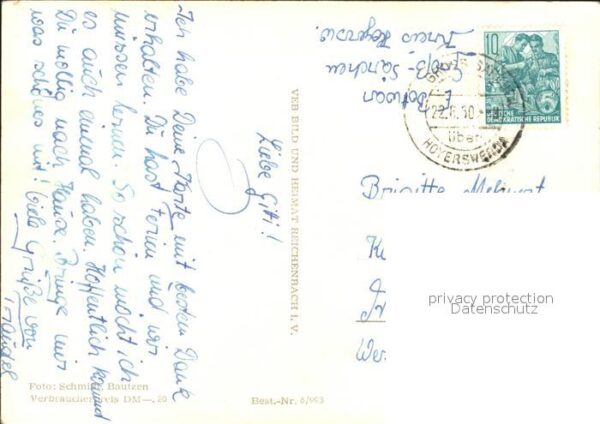 Liebe Giti!
Ich habe Deine Karte mit besten Dank
erhalten. Du hast Ferien und wir
müssen lernen. So schön möcht ich
es auch einmal haben. Hoffentlich kommst
Du mollig nach Hause. Bringe mir
was schönes mit! Viele Grüße von
Traudel
VEB BILD UND HEIMAT REICHENBACH I. V.
Foto: Schmidt, Bautzen
Verbraucherpreis DM —,20
Best.-Nr. 6/993
Kreis Hoyersw.
Groß-Särchen
10
DEUTSCHE
DEMOKRATISCHE REPUBLIK
22.6.60
über
HOYERSWERDA
Brigitte
privacy protection
Datenschutz